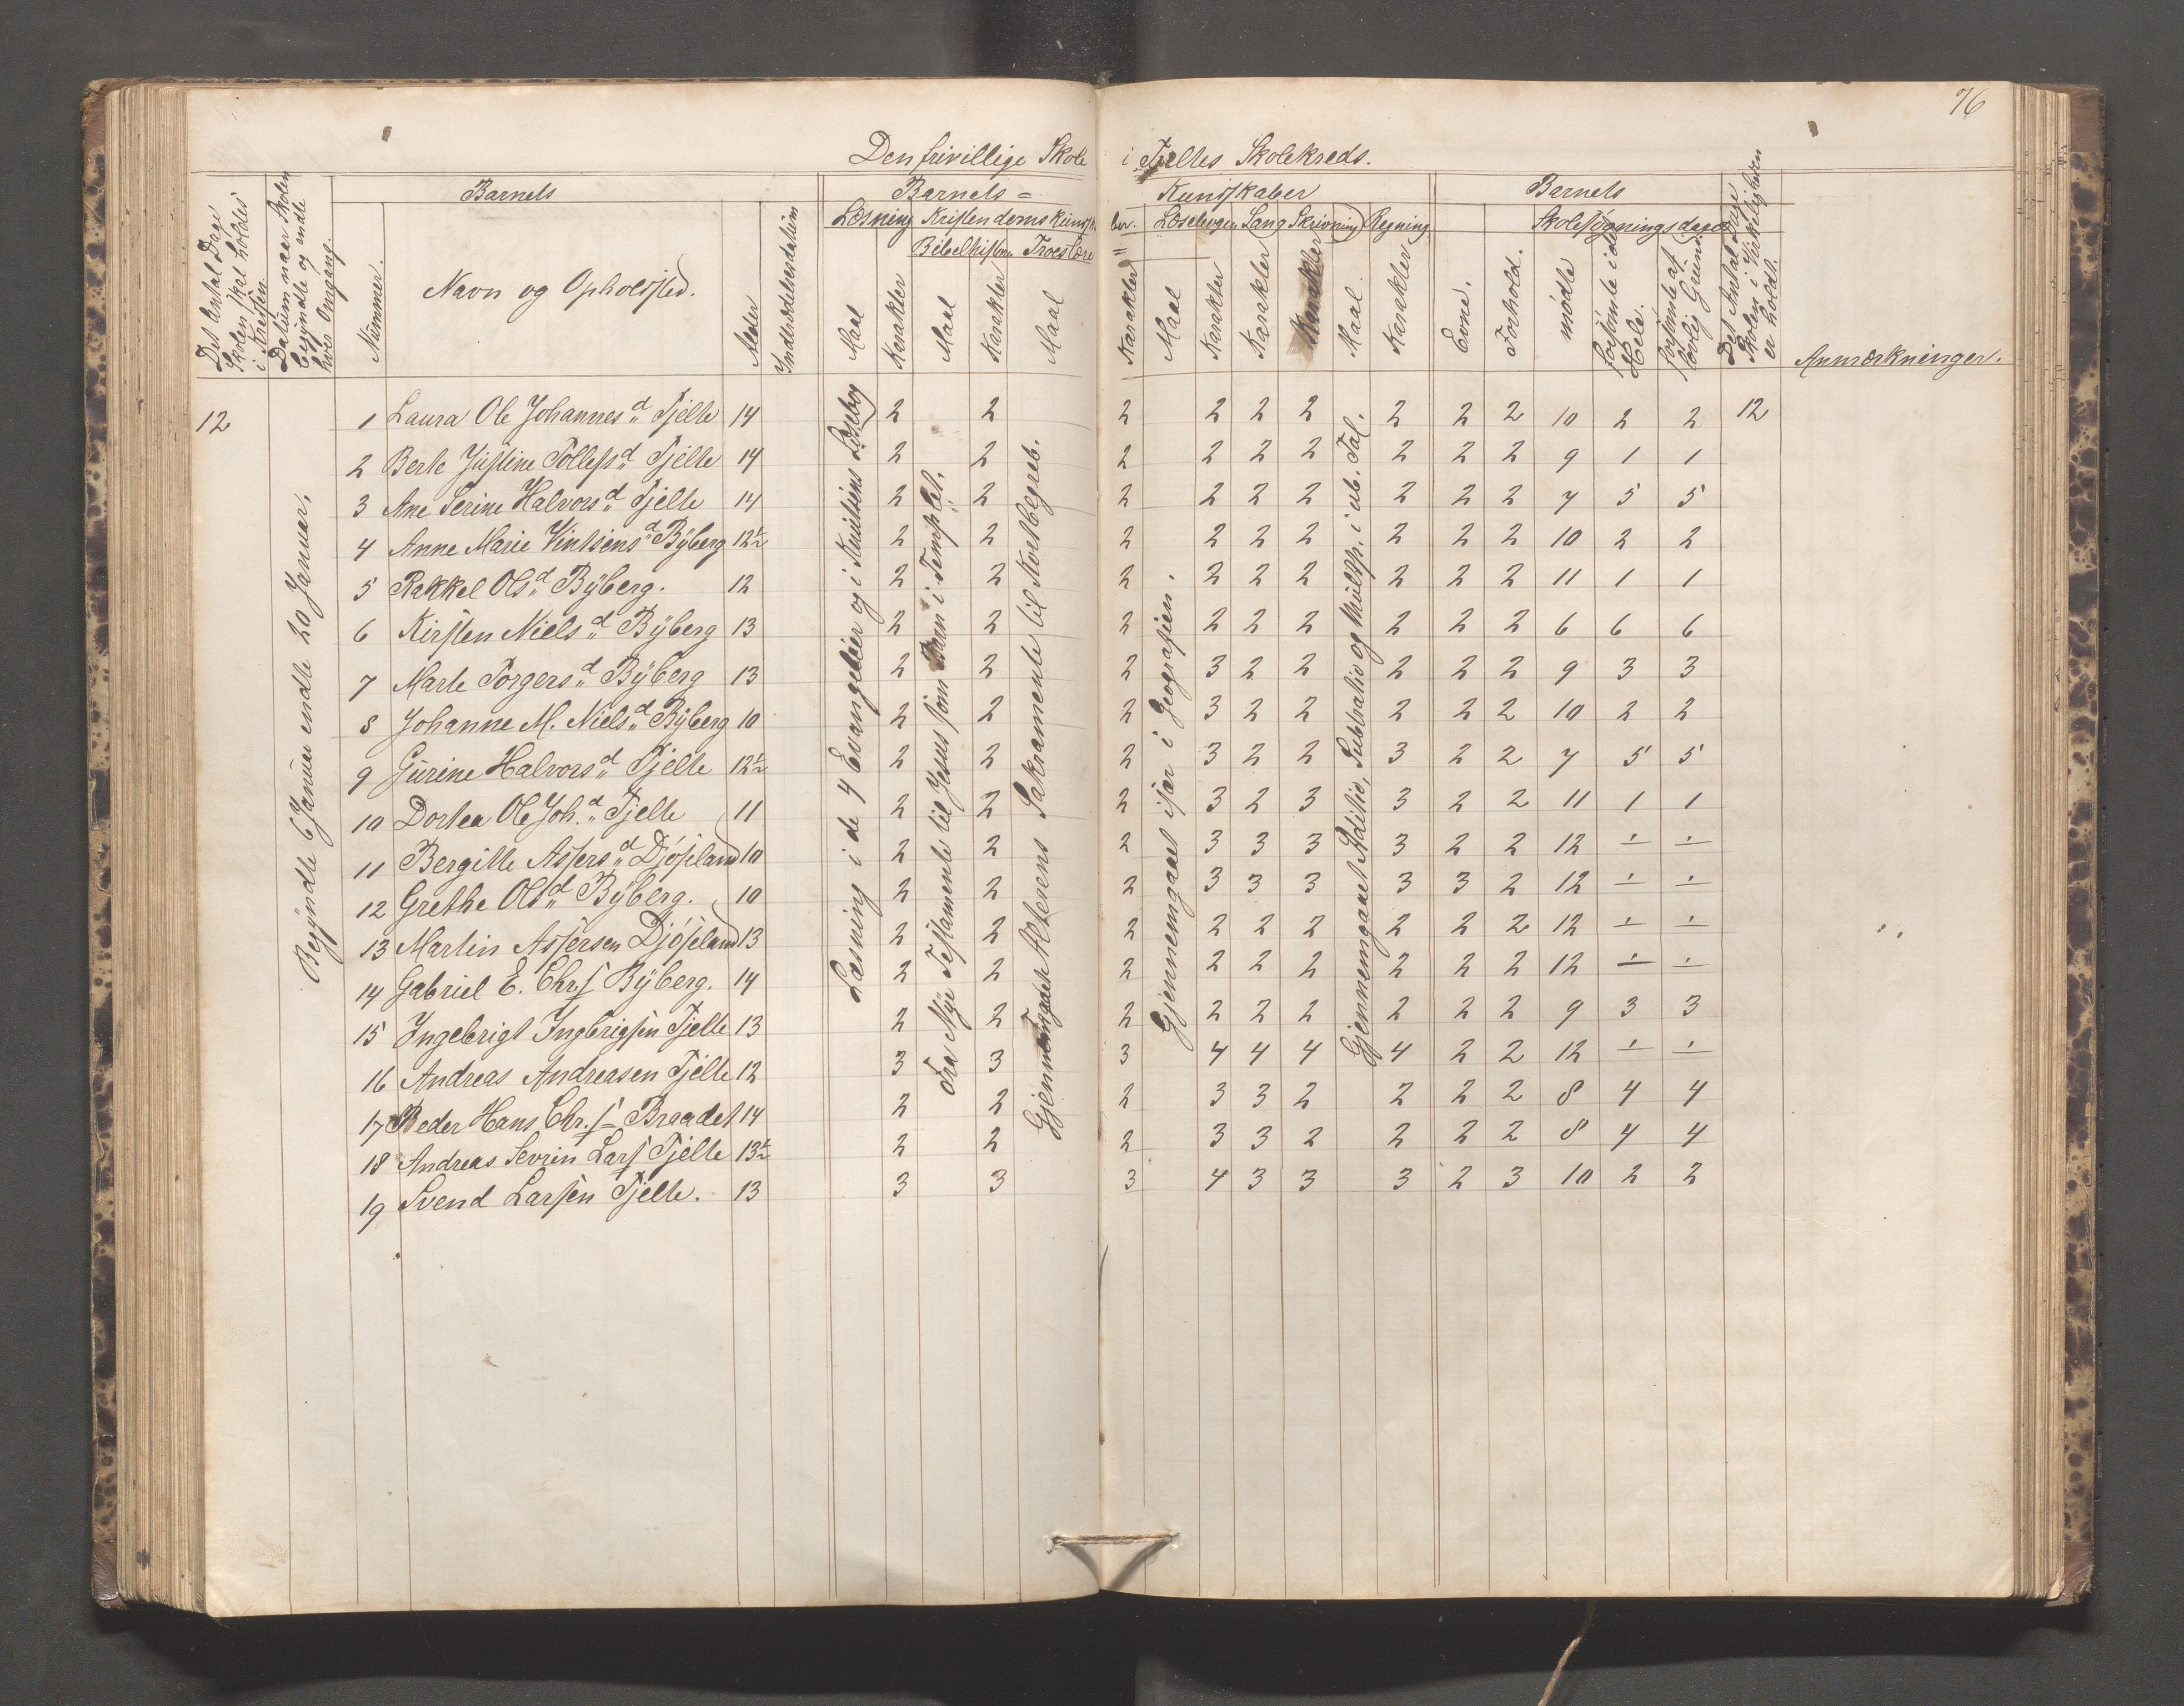 76
Den frivillige Skole i Tjeltes Skolekreds.
Barnets
Barnets =
Kundskaber
Barnets
Læsning Kristendomskundsk
ber. Læsebogen Sang Skrivning Regning
Skolesøgningsdage
Bibelhistorie Troeslære
=
Det Antal Dage Skolen skal holdes i Kredsen.
Datum naar Skolen begyndte og endte hver Omgang.
Nummer.
Navn og Opholdsted.
Alder
Indtrædelsesdatum
Maal
Karakter
Maal
Karakter
Maal
Karakter
Maal
Karakter
Karakter
Karakter
Maal
Karakter
Evne.
Forhold.
mødte
forsømte i det Hele.
forsømte af lovlig Grund.
Det Antal Dage Skolen i Virkeligheden er holdt.
Anmærkninger.
12
Begyndte 6 Januar endte 20 Januar.
Læsning i de 4 Evangelier og i Knutsens Læsebog
Fra Nye Testamente til Jesus som Barn i Templet.
Gjennemgaaet Alterens Sakramente til Kortbegreb.
Gjennemgaaet især i Geografien.
Gjennemgaaet Aditio, Subtratio og Multip. i ub. Tal.
1 Laura Ole Johannes d. Tjelte 14 2 2 2 2 2 2 2 2 2 10 2 2 12
2 Berte Justine Tollefs d. Tjelte 14 2 2 2 2 2 2 2 2 2 9 1 1
3 Ane Serine Halvors d. Tjelte 14 2 2 2 2 2 2 2 2 2 7 5 5
4 Anne Marie Vintsens d. Byberg 12½ 2 2 2 2 2 2 2 2 2 10 2 2
5 Rakkel Ols d. Byberg. 12 2 2 2 2 2 2 2 2 2 11 1 1
6 Kirsten Niels d. Byberg 13 2 2 2 2 2 2 2 2 2 6 6 6
7 Marte Torgers d. Byberg 13 2 2 2 3 2 2 2 2 2 9 3 3
8 Johanne M. Niels d. Byberg 10 2 2 2 3 2 2 2 2 2 10 2 2
9 Gurine Halvors d. Tjelte 12½ 2 2 2 3 2 2 3 2 2 7 5 5
10 Dortea Ole Joh. d. Tjelte 11 2 2 2 3 2 3 3 2 2 11 1 1
11 Bergitte Assers d. Djøseland 10 2 2 2 3 3 3 3 2 2 12 ÷ ÷
12 Grethe Ols d. Byberg. 10 2 2 2 3 3 3 3 3 2 12 ÷ ÷
13 Martin Assersen Djøseland 13 2 2 2 2 2 2 2 2 2 12 ÷ ÷
14 Gabriel E. Chrs Byberg. 14 2 2 2 2 2 2 2 2 2 12 ÷ ÷
15 Ingebrigt Ingbrigsen Tjelte 13 2 2 2 2 2 2 2 2 2 9 3 3
16 Andreas Andreasen Tjelte 12 3 3 3 4 4 4 4 2 2 12 ÷ ÷
17 Peder Hans Chr. s Braadet 14 2 2 2 3 3 2 2 2 2 8 4 4
18 Andreas Sevrin Lars Tjelte 13½ 2 2 2 3 3 2 2 2 2 8 4 4
19 Svend Larsen Tjelte. 13 3 3 3 4 3 3 3 2 3 10 2 2